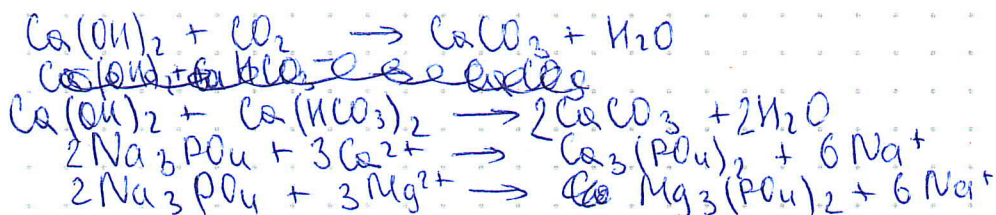 Ca(OH)₂ + CO₂ → CaCO₃ + H₂O
Ca(OH)₂ + Ca(HCO₃)₂ → 2CaCO₃ + 2H₂O
2Na₃PO₄ + 3Ca²⁺ → Ca₃(PO₄)₂ + 6Na⁺
2Na₃PO₄ + 3Mg²⁺ → Mg₃(PO₄)₂ + 6Na⁺